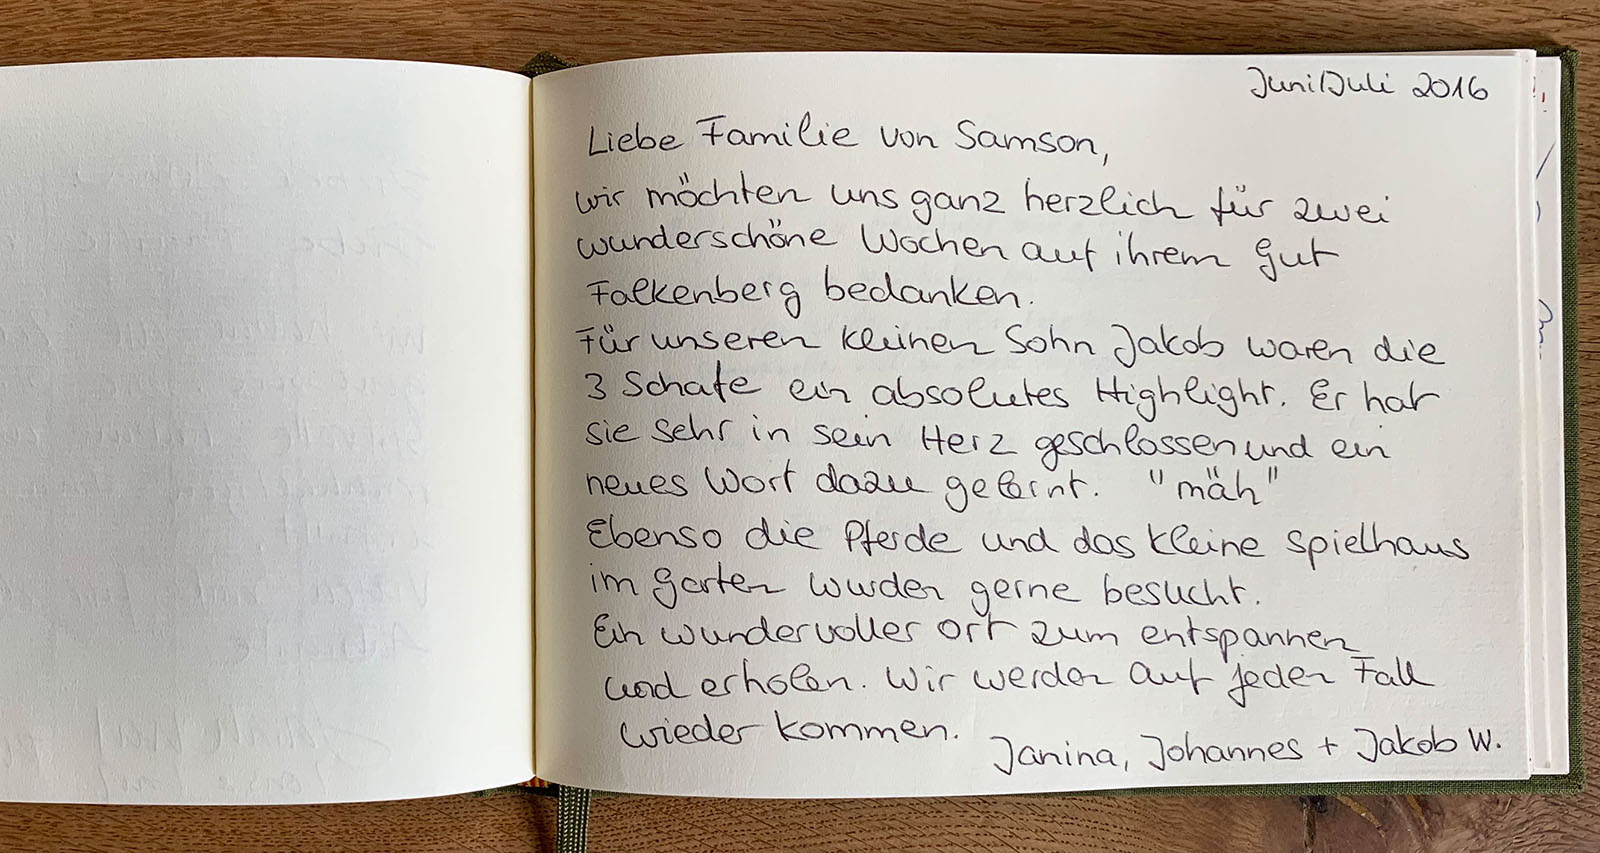 Juni/Juli 2016
Liebe Familie von Samson,
wir möchten uns ganz herzlich für zwei
wunderschöne Wochen auf ihrem Gut
Falkenberg bedanken.
Für unseren kleinen Sohn Jakob waren die
3 Schafe ein absolutes Highlight. Er hat
sie sehr in sein Herz geschlossen und ein
neues Wort dazu gelernt. "mäh"
Ebenso die Pferde und das kleine Spielhaus
im Garten wurden gerne besucht.
Ein wundervoller Ort zum entspannen
und erholen. Wir werden auf jeden Fall
wieder kommen.
Janina, Johannes + Jakob W.